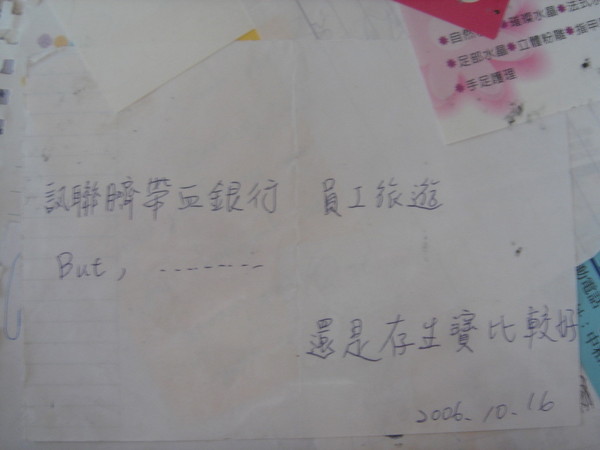 璀璨水晶●法式
足部水晶●立體粉雕●指甲
●手足護理
訊聯臍帶血銀行 員工旅遊
But, --------
還是存生寶比較好
2006.10.16
動電話